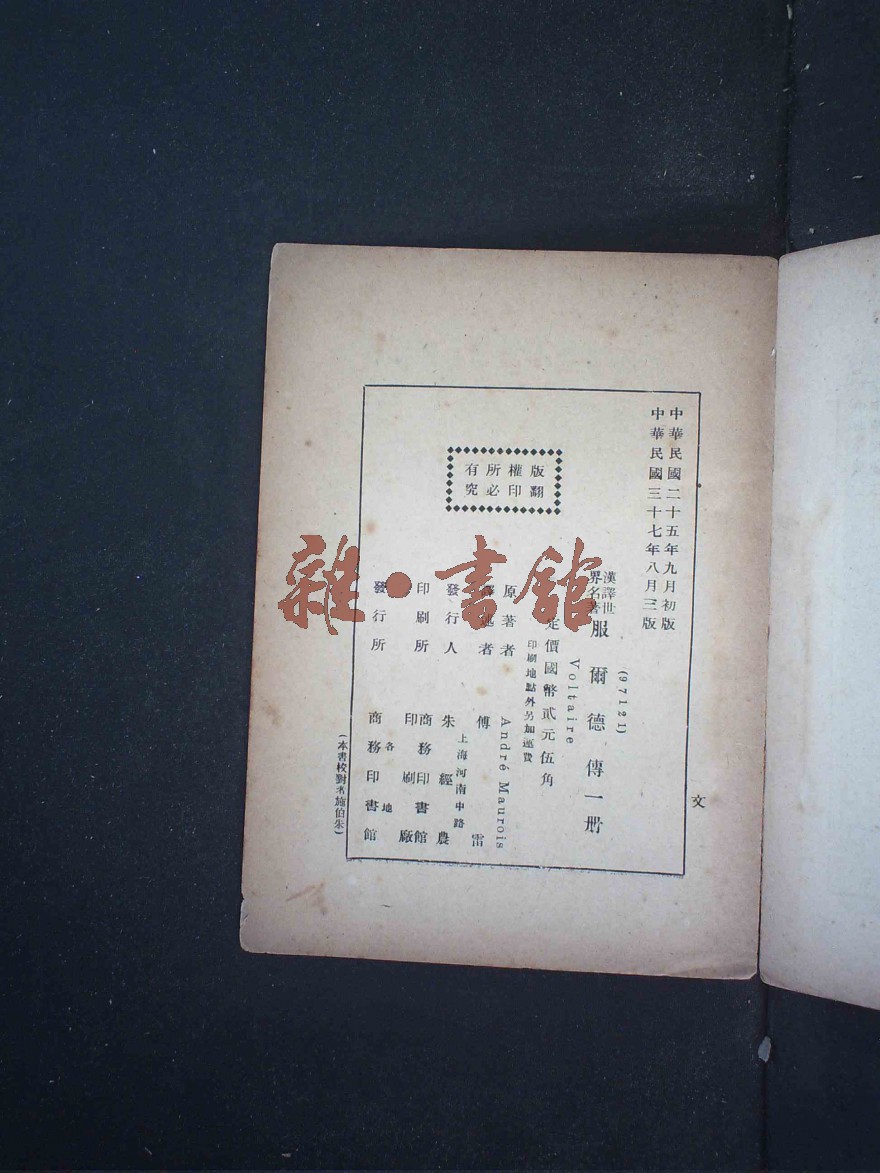 中華民國二十五年九月初版
中華民國三十七年八月三版
(97121)
漢譯世界名著
服爾德傳一册
Voltaire
定價國幣貳元伍角
印刷地點外另加運費
原著者 André Maurois
譯述者 傅雷
上海河南中路
發行人 朱經農
印刷所 商務印書館印刷廠
各地
發行所 商務印書館
(本書校對者施伯朱)
版權所有
翻印必究
文
雜·書館